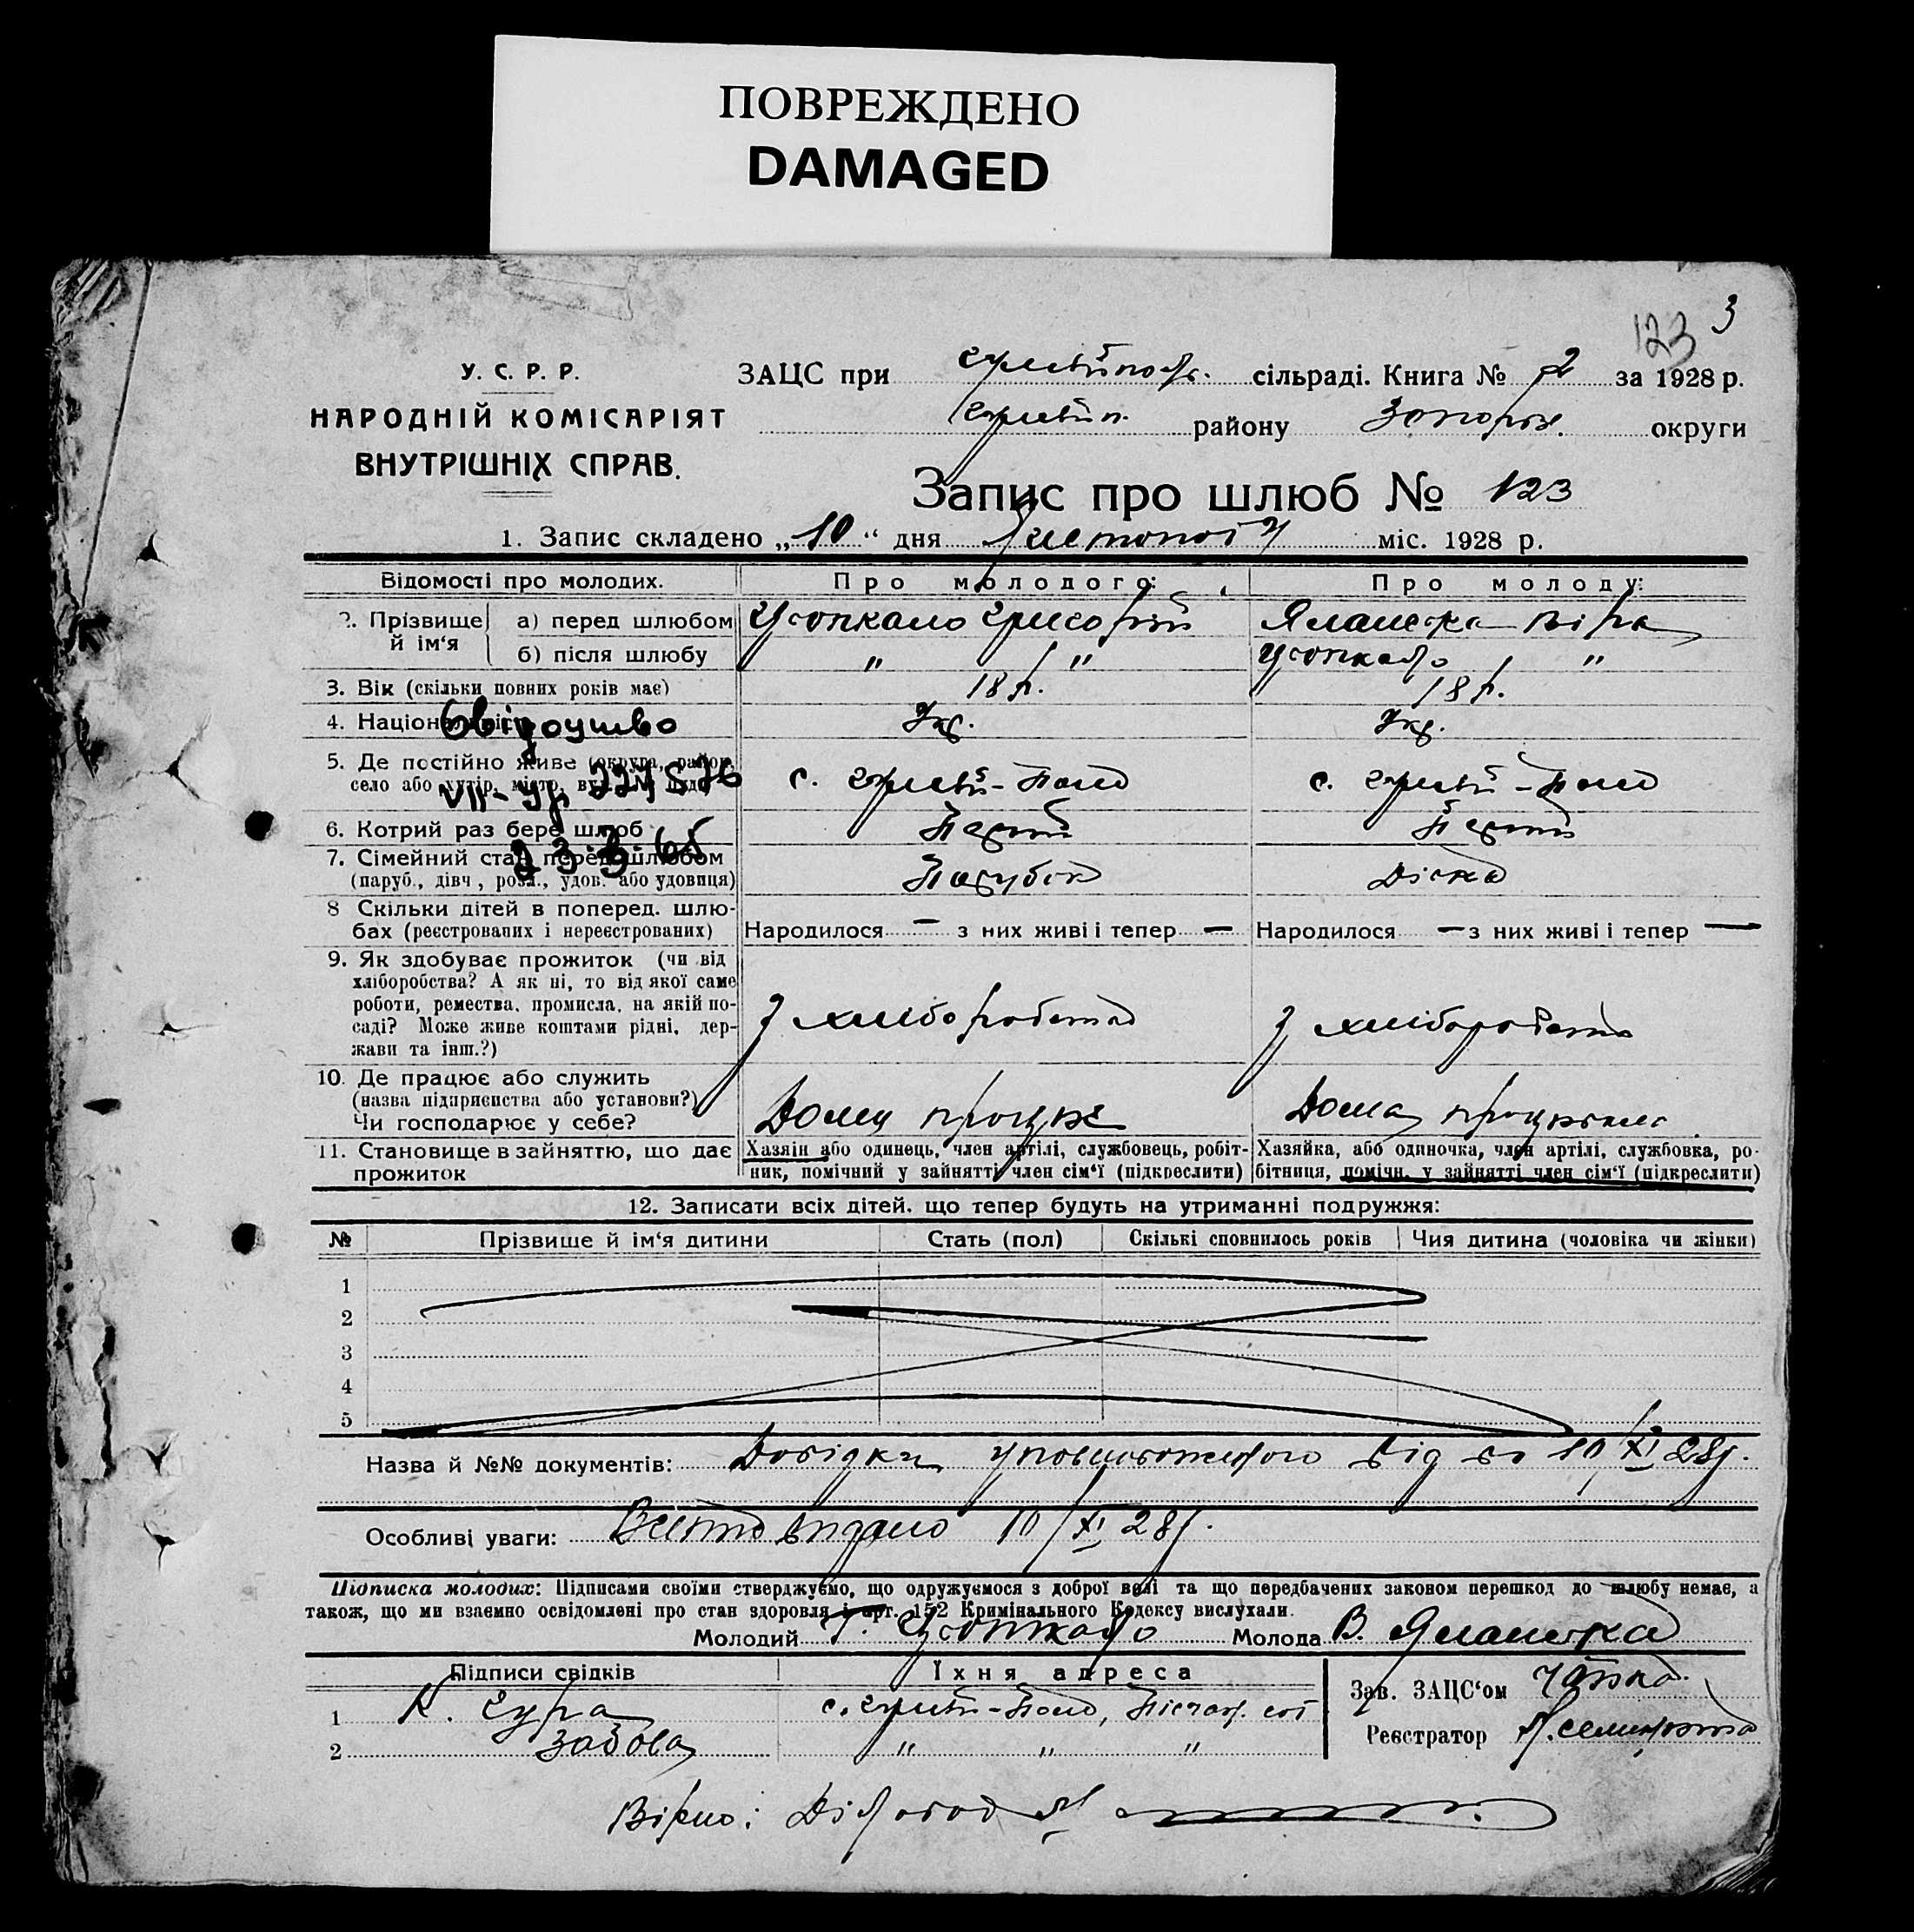 ПОВРЕЖДЕНО
DAMAGED
3
123
У. С. Р. Р.
НАРОДНІЙ КОМІСАРІЯТ
ВНУТРІШНІХ СПРАВ.
ЗАЦС при сільраді. Книга № 2 за 1928 р.
району Запоріж. округи
Запис про шлюб № 123
1. Запис складено „10“ дня Листопада міс. 1928 р.
Відомості про молодих. Про молодого: Про молоду:
2. Прізвище й ім‘я а) перед шлюбом Григорій Віра
б) після шлюбу " " "
3. Вік (скільки повних років має) 18 р. 18 р.
4. Національність Укр. Укр.
Свідоцтво
5. Де постійно живе (округа, район, село або хутір, місто, вул. № буд.) с. Гуляй-Поле с. Гуляй-Поле
VII-УР 227576
6. Котрий раз бере шлюб Перший Перший
23.3.65
7. Сімейний стан перед шлюбом (паруб., дівч., розл., удов. або удовиця) Парубок Дівка
8 Скільки дітей в поперед. шлюбах (реєстрованих і нереєстрованих) Народилося — з них живі і тепер — Народилося — з них живі і тепер —
9. Як здобуває прожиток (чи від хліборобства? А як ні, то від якої саме роботи, ремества, промисла, на якій посаді? Може живе коштами рідні, держави та інш.?) З хліборобства З хліборобства
10. Де працює або служить (назва підприємства або установи?) Чи господарює у себе? Дома працює Дома
11. Становище в зайняттю, що дає прожиток
Хазяін або одинець, член артілі, службовець, робітник, помічний у зайнятті член сім‘ї (підкреслити)
Хазяйка, або одиночка, член артілі, службовка, робітниця, помічн. у зайнятті член сім‘ї (підкреслити)
12. Записати всіх дітей. що тепер будуть на утриманні подружжя:
№ Прізвище й ім‘я дитини Стать (пол) Скількі сповнилось років Чия дитина (чоловіка чи жінки)
1
2
3
4
5
Назва й №№ документів: Довідка від 10/XI 28р.
Особливі уваги: видано 10/XI 28р.
Підписка молодих: Підписами своїми стверджуємо, що одружуємося з доброї волі та що передбачених законом перешкод до шлюбу немає, а
також, що ми взаємно освідомлені про стан здоровля і арт. 152 Кримінального Кодексу вислухали.
Молодий Г. Молода В.
Підписи свідків Їхня адреса Зав. ЗАЦС‘ом
1 К. с. Гуляй-Поле,
Реєстратор
2 " " "
Вірно: Діловод